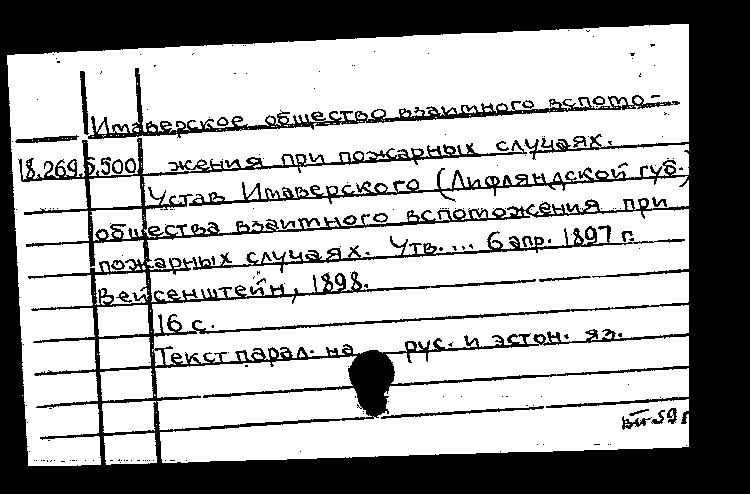 Имаверское общество взаимного вспомо-
18.269.5.500 жения при пожарных случаях.
Устав Имаверского (Лифляндской губ.)
общества взаимного вспоможения при
пожарных случаях. Утв. ... 6 апр. 1897 г.
Вейсенштейн, 1898.
16 с.
Текст парал. на рус. и эстон. яз.